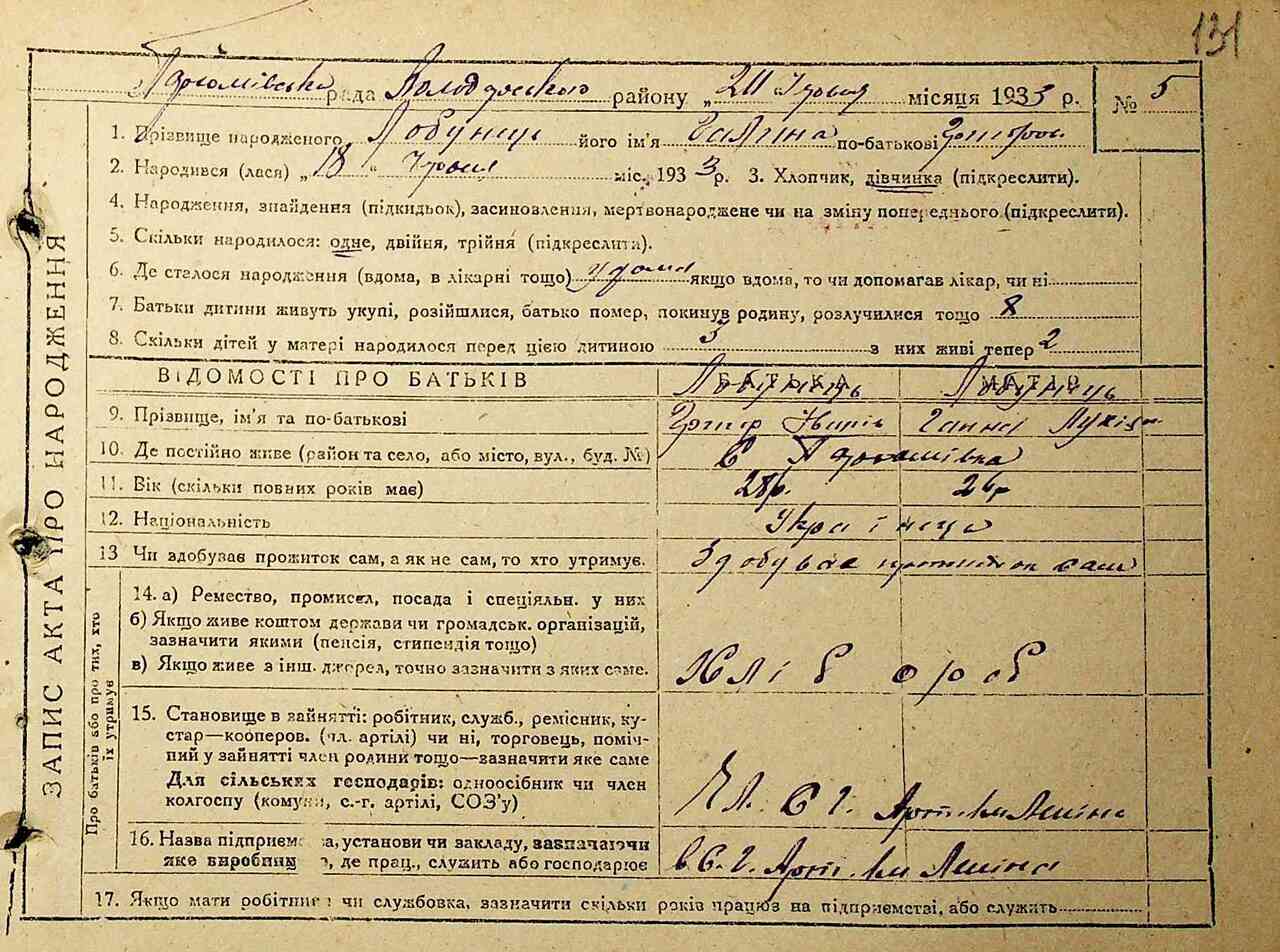 131
рада району „ місяця 1933 р. № 5
1. Прізвище народженого Лобунець його ім'я Галина по-батькові
2. Народився (лася) „ 18 “ міс. 1933 р. 3. Хлопчик, дівчинка (підкреслити).
4. Народження, знайдення (підкидьок), засиновлення, мертвонароджене чи на зміну попереднього (підкреслити).
5. Скільки народилося: одне, двійня, трійня (підкреслити).
6. Де сталося народження (вдома, в лікарні тощо) удома якщо вдома, то чи допомагав лікар, чи ні
7. Батьки дитини живуть укупі, розійшлися, батько помер, покинув родину, розлучилися тощо
8. Скільки дітей у матері народилося перед цією дитиною 3 з них живі тепер 2
ВІДОМОСТІ ПРО БАТЬКІВ БАТЬКА МАТІР
Лобунець Лобунець
9. Прізвище, ім'я та по-батькові Ганна
10. Де постійно живе (район та село, або місто, вул., буд. №) с
11. Вік (скільки повних років має) 28р. 26р
12. Національність Українець
13 Чи здобуває прожиток сам, а як не сам, то хто утримує. Здобуває прожиток сам
14. а) Ремество, промисел, посада і спеціяльн. у них
б) Якщо живе коштом держави чи громадськ. організацій,
зазначити якими (пенсія, стипендія тощо)
в) Якщо живе з інш. джерел, точно зазначити з яких саме. Хлібороб
15. Становище в зайнятті: робітник, служб., ремісник, ку-
стар—кооперов. (чл. артілі) чи ні, торговець, поміч-
ний у зайнятті член родини тощо—зазначити яке саме
Для сільських господарів: одноосібник чи член
колгоспу (комуни, с.-г. артілі, СОЗ'у) Чл. с г. Арт. ім Леніна
16. Назва підприємства, установи чи закладу, зазначаючи
яке виробниц , де прац., служить або господарює в с. г. Арт. ім Леніна
17. Якщо мати робітниця чи службовка, зазначити скільки років працює на підприємстві, або служить
ЗАПИС АКТА ПРО НАРОДЖЕННЯ
Про батьків або про тих, хто
їх утримує